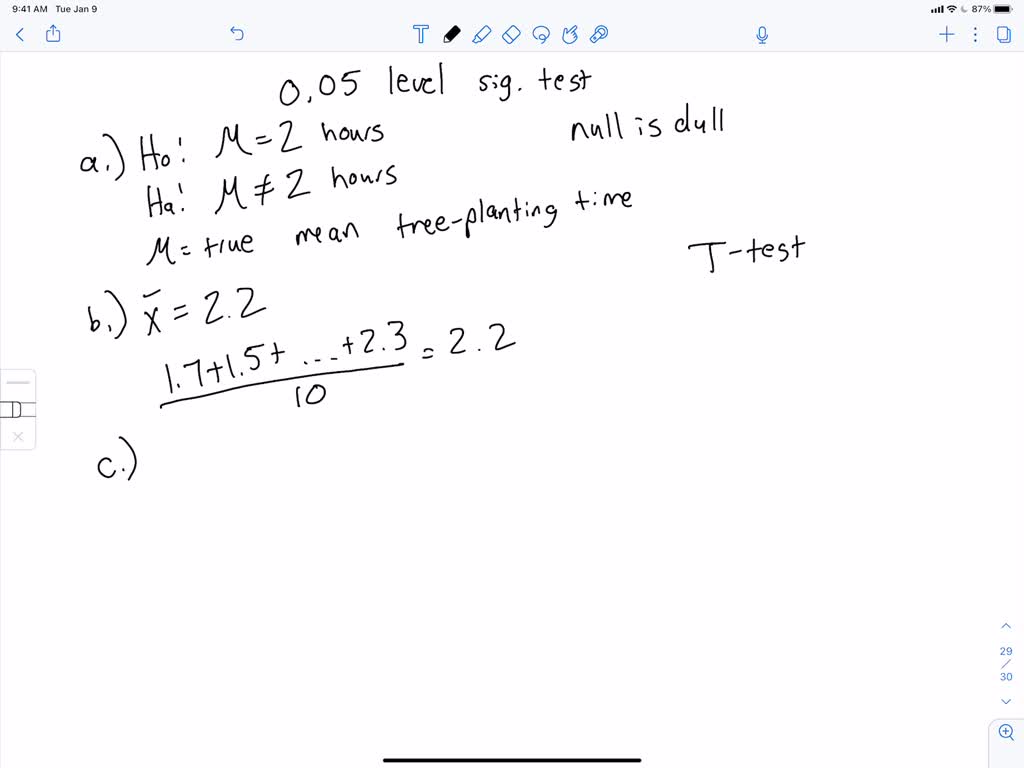 9:41 AM Tue Jan 9
87%
0.05 level sig. test
null is dull
a.) Ho: μ = 2 hours
Ha: μ ≠ 2 hours
μ = true mean tree-planting time
T-test
b.) x̄ = 2.2
1.7+1.5+ ... +2.3 = 2.2
10
c.)
29
/
30